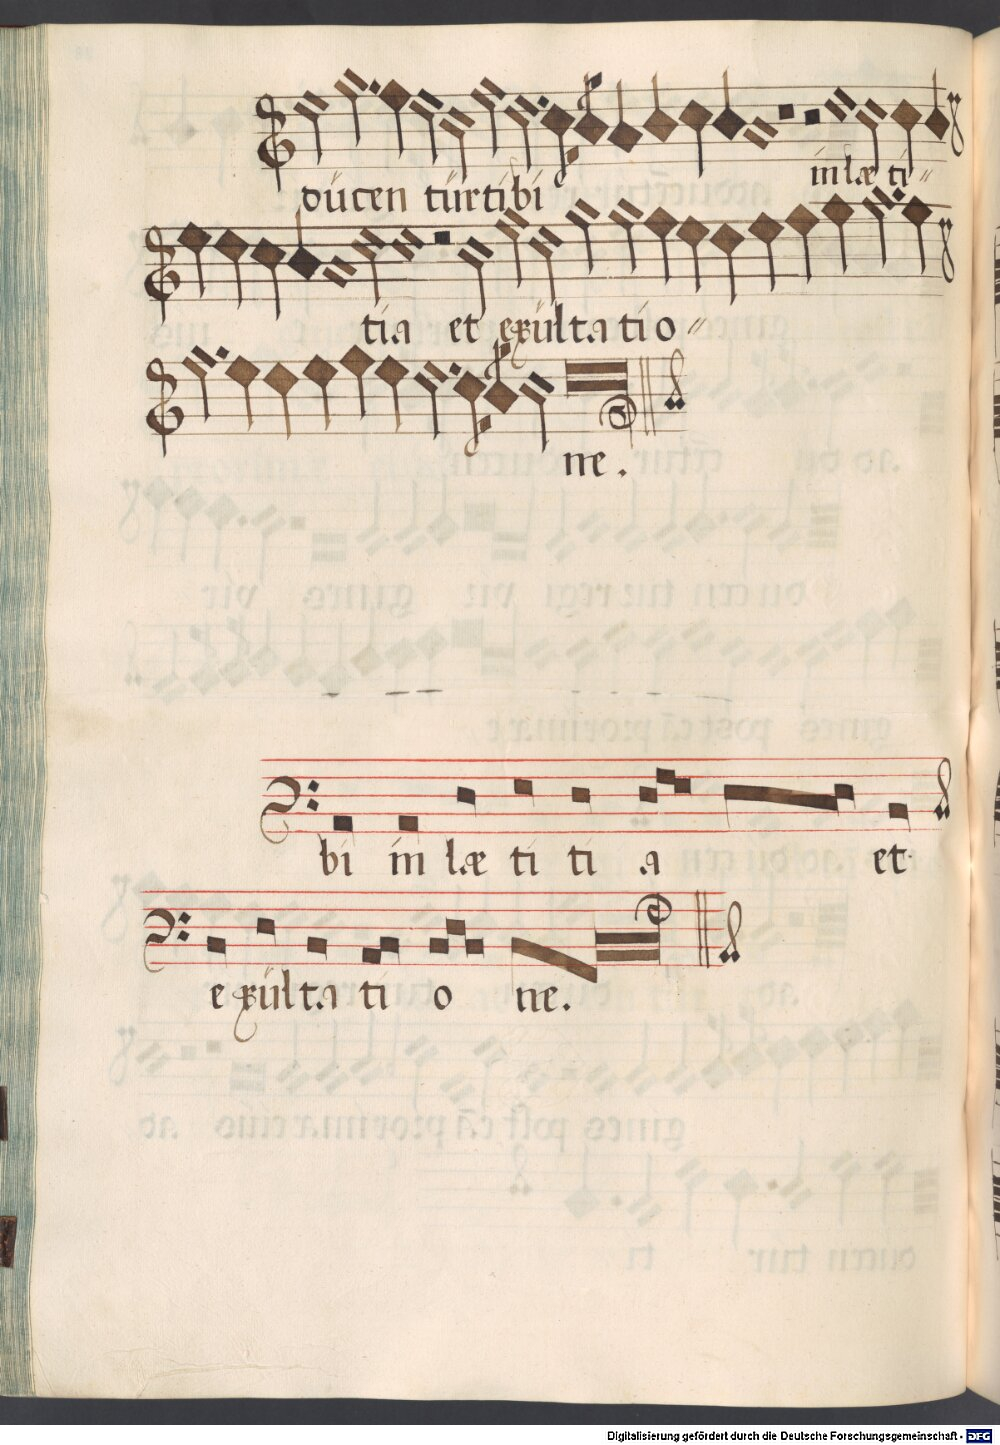 ducen tur tibi in læ ti
tia et exulta tio
ne.
bi in læ ti ti a et
exulta ti o ne.
Digitalisierung gefördert durch die Deutsche Forschungsgemeinschaft - DFG